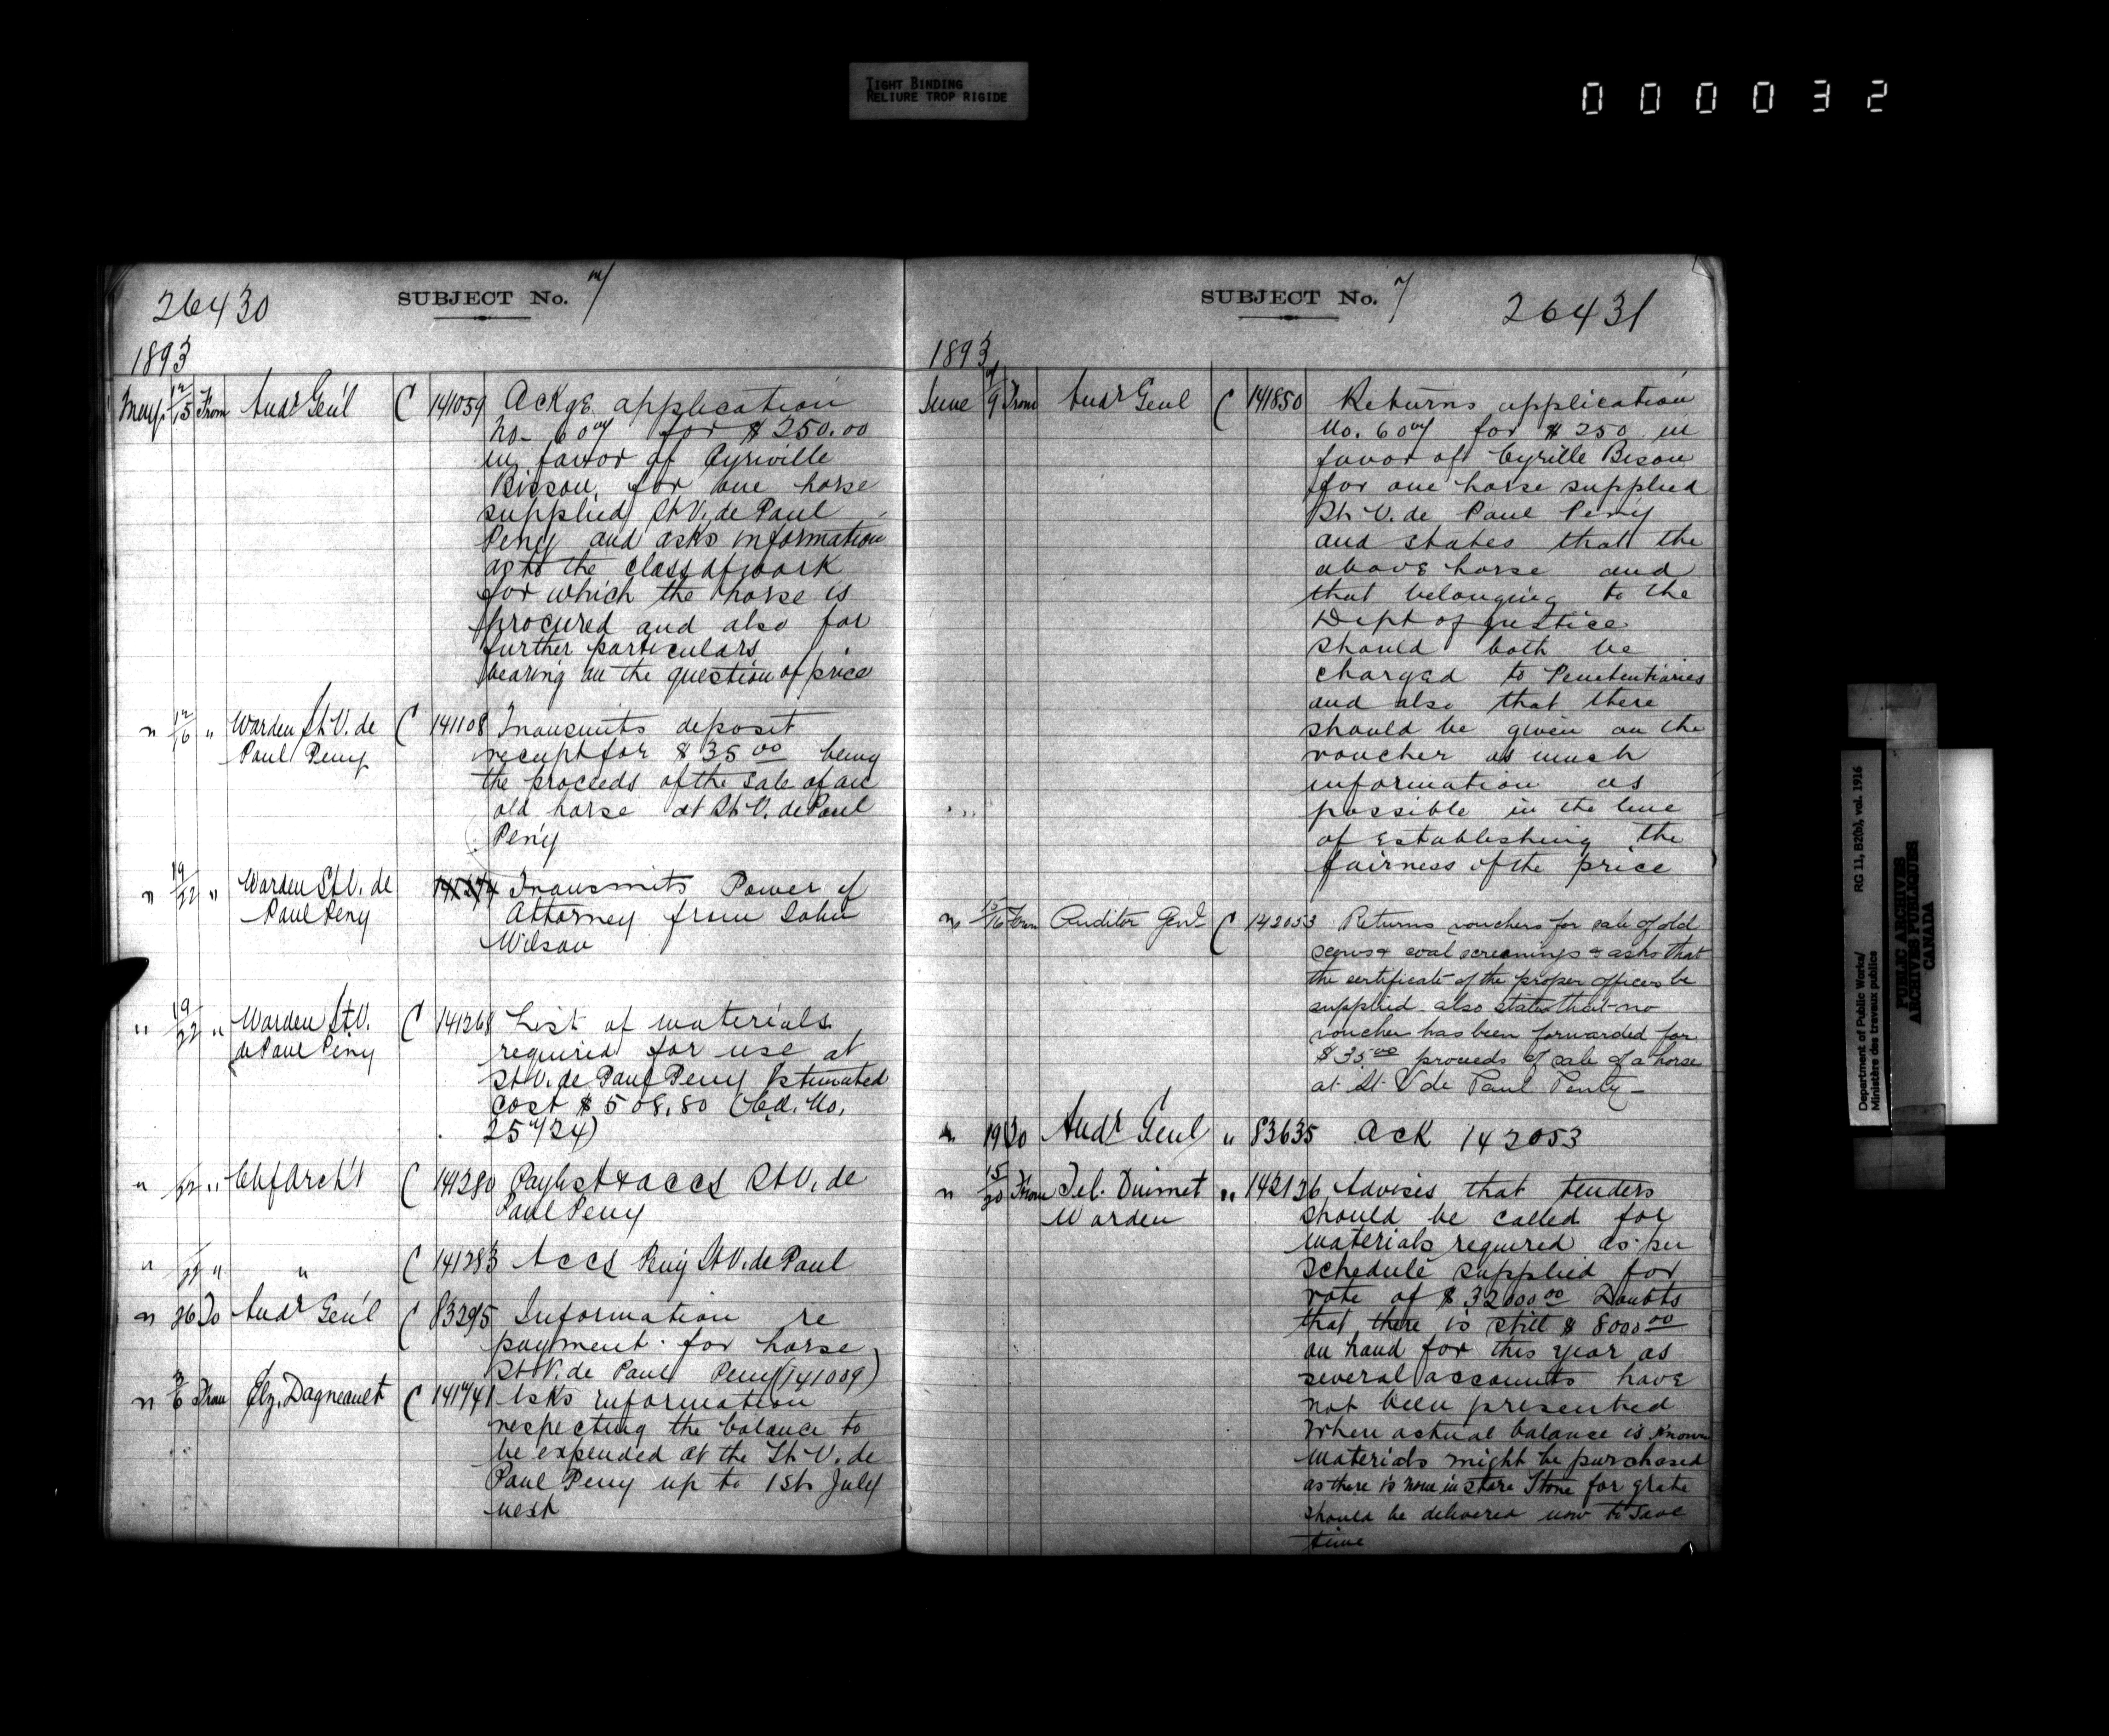 TIGHT BINDING
RELIURE TROP RIGIDE
000032
26430
SUBJECT No. 7
1893
May 12/15 From Audr Gen'l C 141059 Ackge application
No- 607 for $250.00
in favor of Cyriville
Bisson, for one horse
supplied St V. de Paul
Peny and asks information
as to the class of work
for which the horse is
procured and also for
further particulars
bearing on the question of price
" 12/16 " Warden St V. de C 141108 Transmits deposit
Paul Peny receipt for $35.00 being
the proceeds of the sale of an
old horse at St V. de Paul
Peny
" 19/22 " Warden St V. de Transmits Power of
Paul Peny Attorney from John
Wilson
" 19/22 " Warden St V. C 141268 List of materials
de Paul Peny required for use at
St V. de Paul Peny Estimated
cost $508.80 (Cd. No.
25724)
" 22 " Chf Arch't C 141280 Paylist & accs St V. de
Paul Peny
" " " C 141283 Accs Peny St V. de Paul
" 26 To Audr Gen'l C 83295 Information re
payment for horse
St V. de Paul Peny (141059)
" 3/6 From Elz. Dagneault C 141741 Asks information
respecting the balance to
be expended at the St V. de
Paul Peny up to 1st July
next
SUBJECT No. 7
26431
1893
June 7/9 From Audr Genl C 141850 Returns application
No. 607 for $250 in
favor of Cyrille Bison
for one horse supplied
St V. de Paul Peny
and states that the
above horse and
that belonging to the
Dept of Justice
should both be
charged to Penitentiaries
and also that there
should be given on the
voucher as much
information as
possible in the line
of establishing the
fairness of the price
" 15/16 From Auditor Genl C 142053 Returns vouchers for sale of old
& coal screenings & asks that
the certificate of the proper officers be
supplied also states that no
voucher has been forwarded for
$35.00 proceeds of sale of a horse
at St. V de Paul Penty-
" 19 To Audr Genl " 83635 Ack 142053
" 15/20 From Tel. Ouimet " 142136 Advises that tenders
Warden should be called for
materials required as per
schedule supplied for
vote of $32000.00 Doubts
that there is still $8000.00
on hand for this year as
several accounts have
not been presented
When actual balance is known
materials might be purchased
as there is none in store Stone for grate
should be delivered now to save
time
Department of Public Works/
Ministère des travaux publics
RG 11, B2(b), vol. 1916
PUBLIC ARCHIVES
ARCHIVES PUBLIQUES
CANADA